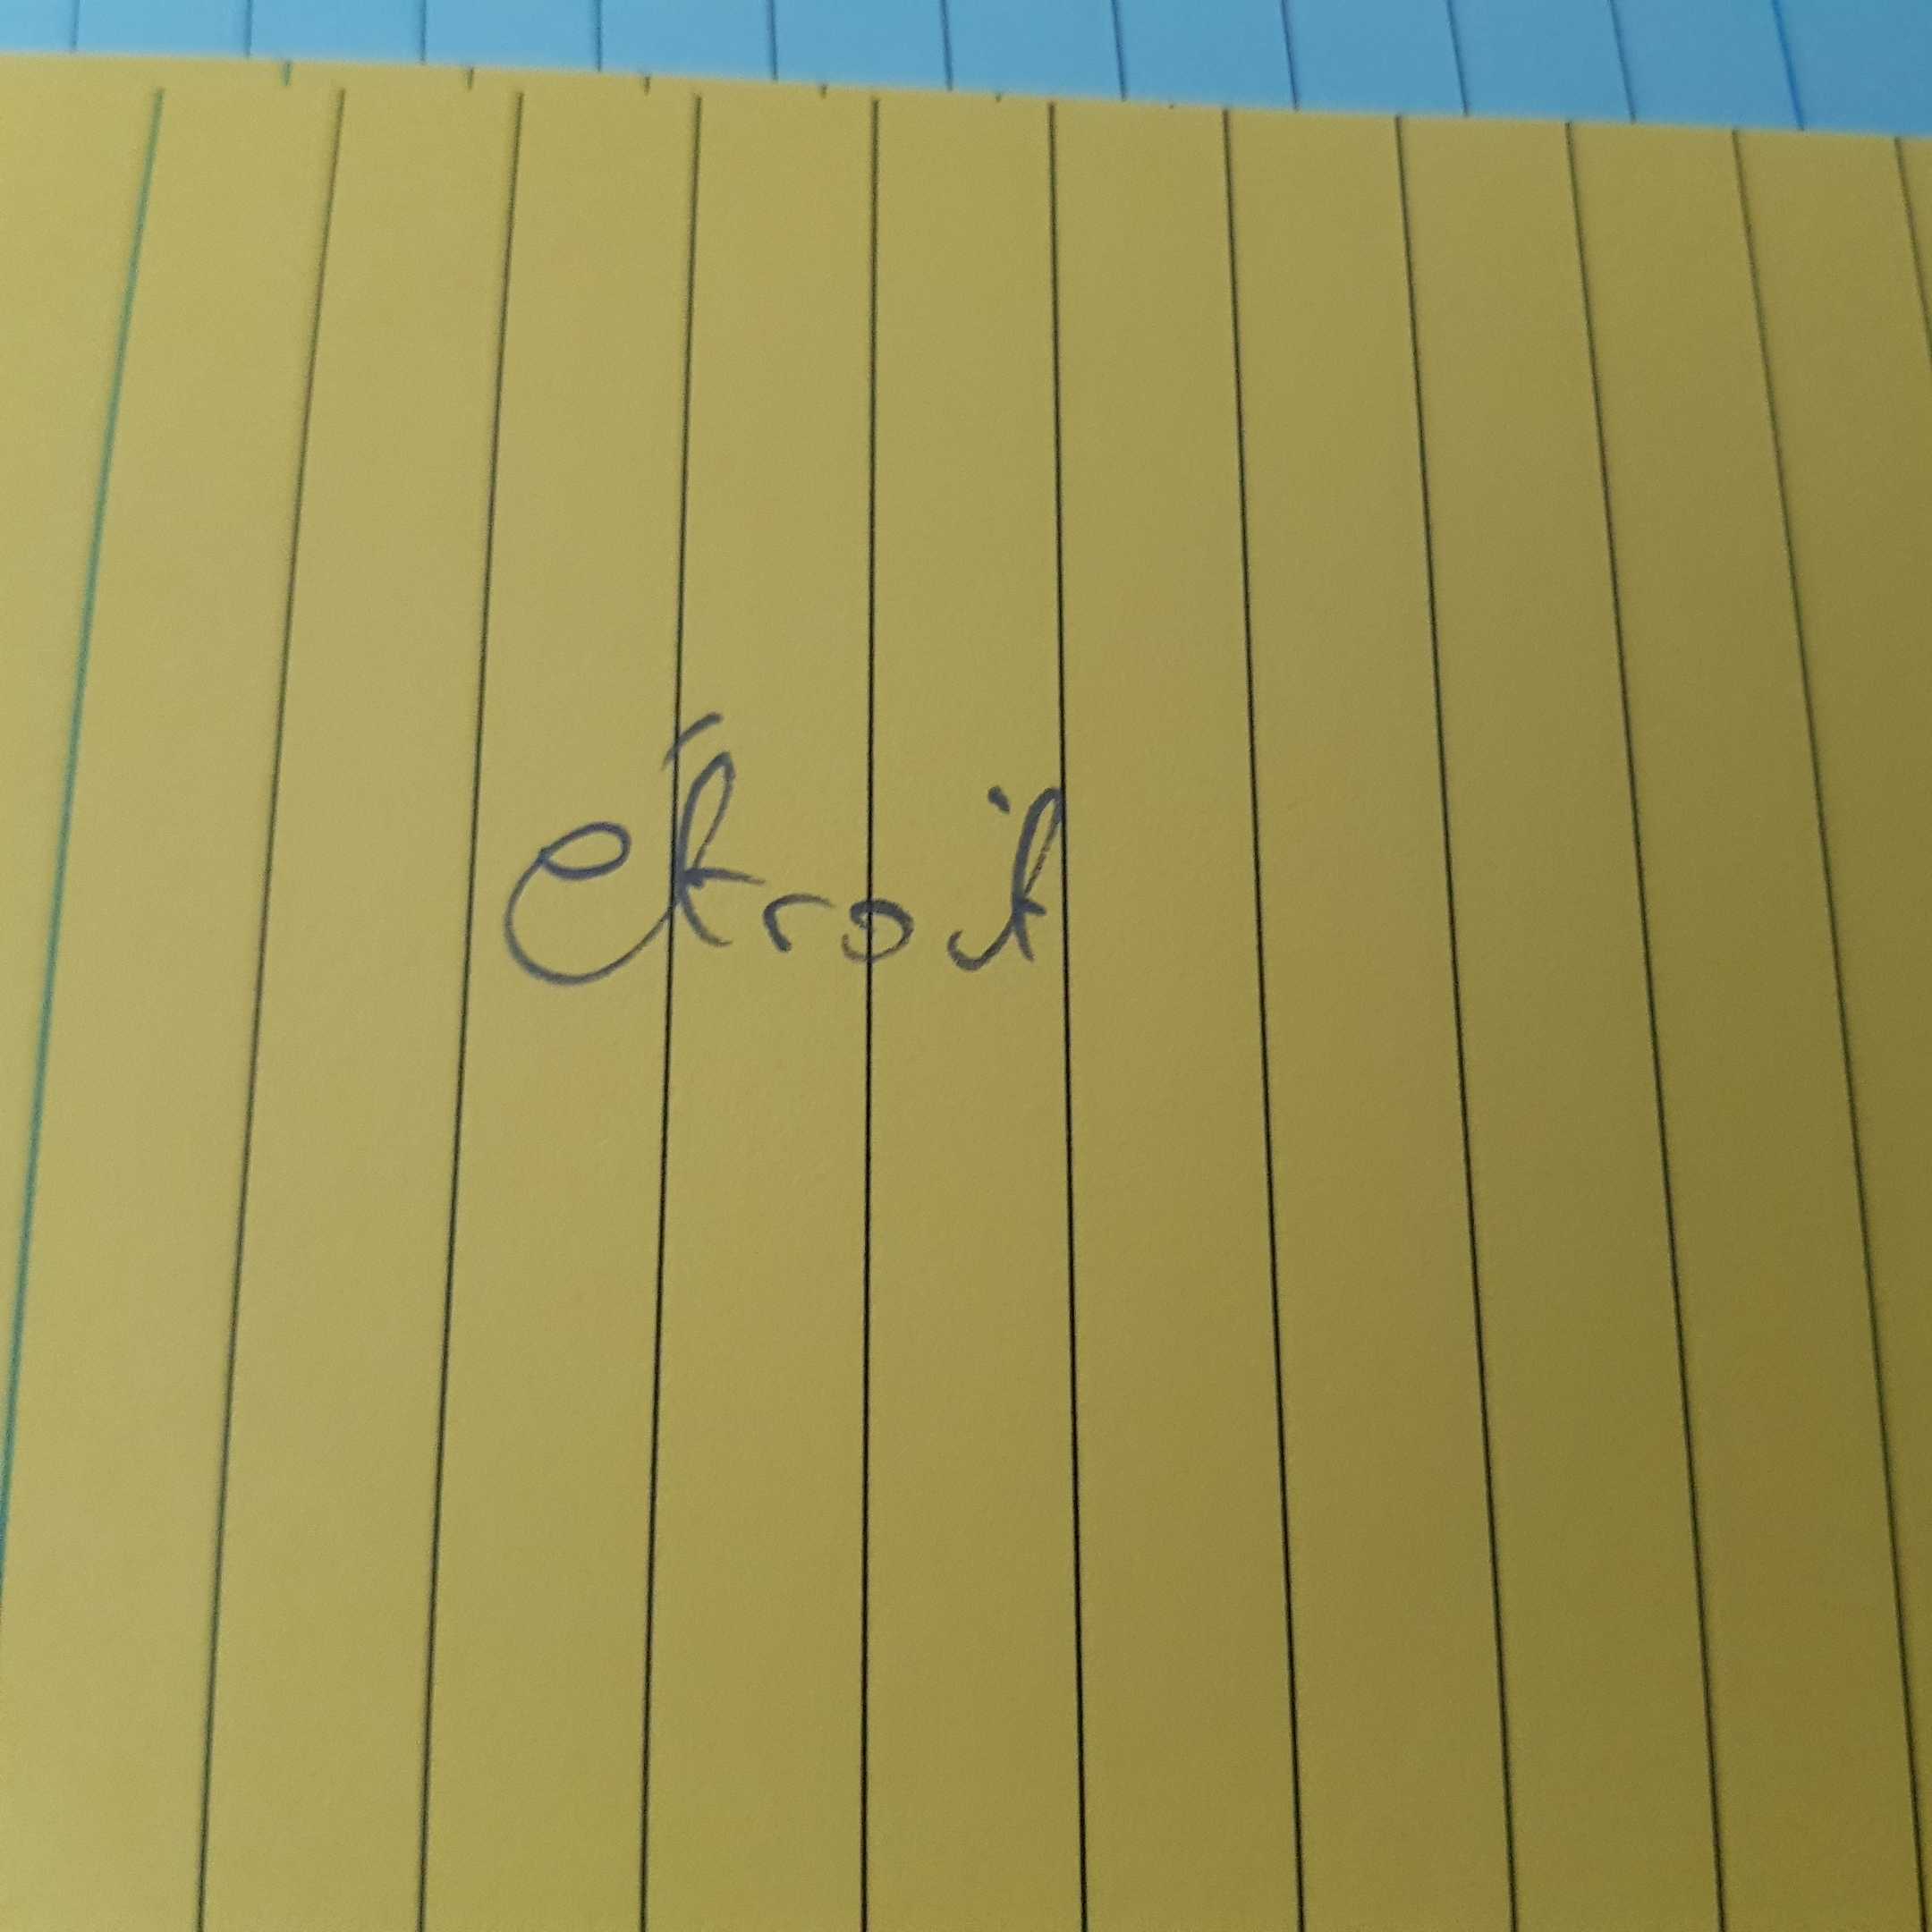 étroit